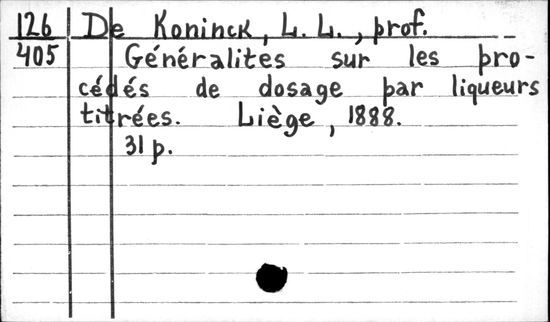 126 De Koninck, L. L., prof.
405 Généralites sur les pro-
cédés de dosage par liqueurs
titrées. Liège, 1888.
31 p.